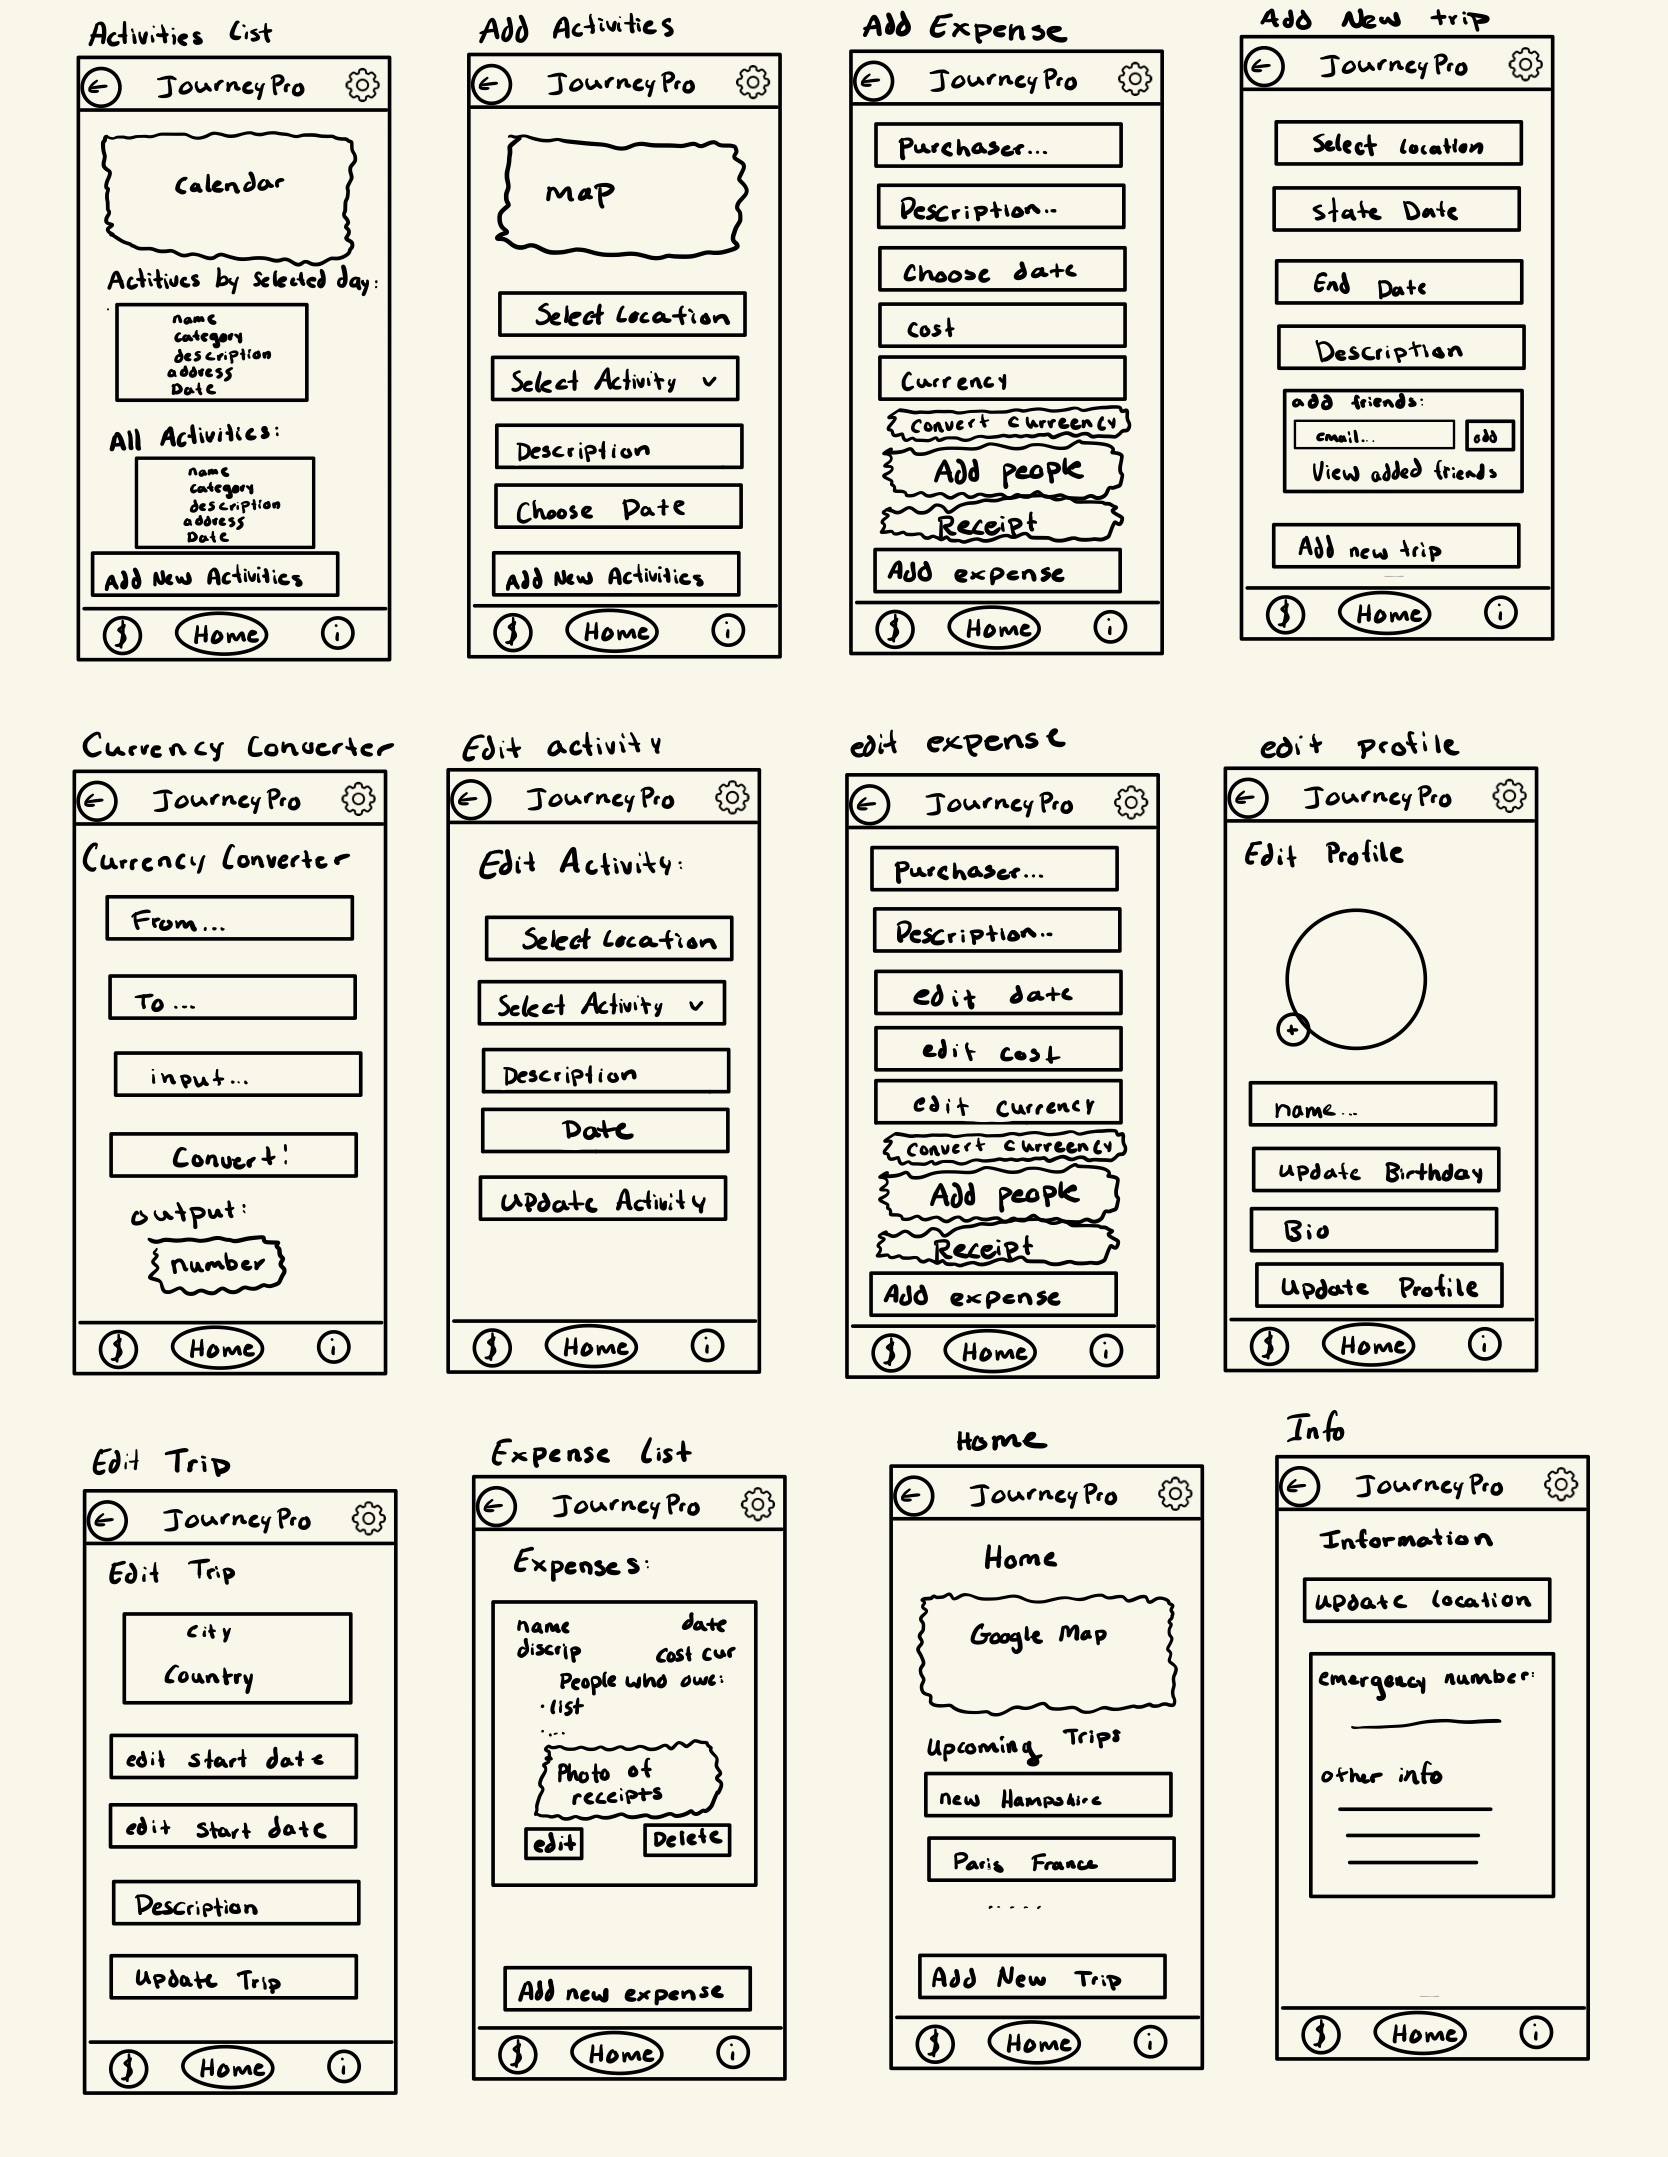 Activities List
← JourneyPro
Calendar
Actitives by selected day:
name
category
description
address
Date
All Activities:
name
category
description
address
Date
Add New Activities
$ Home i
Add Activities
← JourneyPro
map
Select Location
Select Activity ˅
Description
Choose Date
Add New Activities
$ Home i
Add Expense
← JourneyPro
Purchaser...
Description...
Choose date
cost
Currency
Convert Curreency
Add people
Receipt
Add expense
$ Home i
Add New trip
← JourneyPro
Select Location
State Date
End Date
Description
add friends:
email... add
View added friends
Add new trip
$ Home i
Currency Converter
← JourneyPro
Currency Converter
From...
To ...
input...
Convert!
output:
number
$ Home i
Edit activity
← JourneyPro
Edit Activity:
Select Location
Select Activity ˅
Description
Date
Update Activity
$ Home i
edit expense
← JourneyPro
Purchaser...
Description...
edit date
edit cost
edit currency
Convert Curreency
Add people
Receipt
Add expense
$ Home i
edit profile
← JourneyPro
Edit Profile
+
name...
update Birthday
Bio
Update Profile
$ Home i
Edit Trip
← JourneyPro
Edit Trip
City
Country
edit start date
edit start date
Description
Update Trip
$ Home i
Expense List
← JourneyPro
Expenses:
name date
discrip cost cur
People who owe:
· list
· ...
Photo of
receipts
edit Delete
Add new expense
$ Home i
Home
← JourneyPro
Home
Google Map
Upcoming Trips
new Hampshire
Paris France
.....
Add New Trip
$ Home i
Info
← JourneyPro
Information
update location
emergency number:
other info
$ Home i